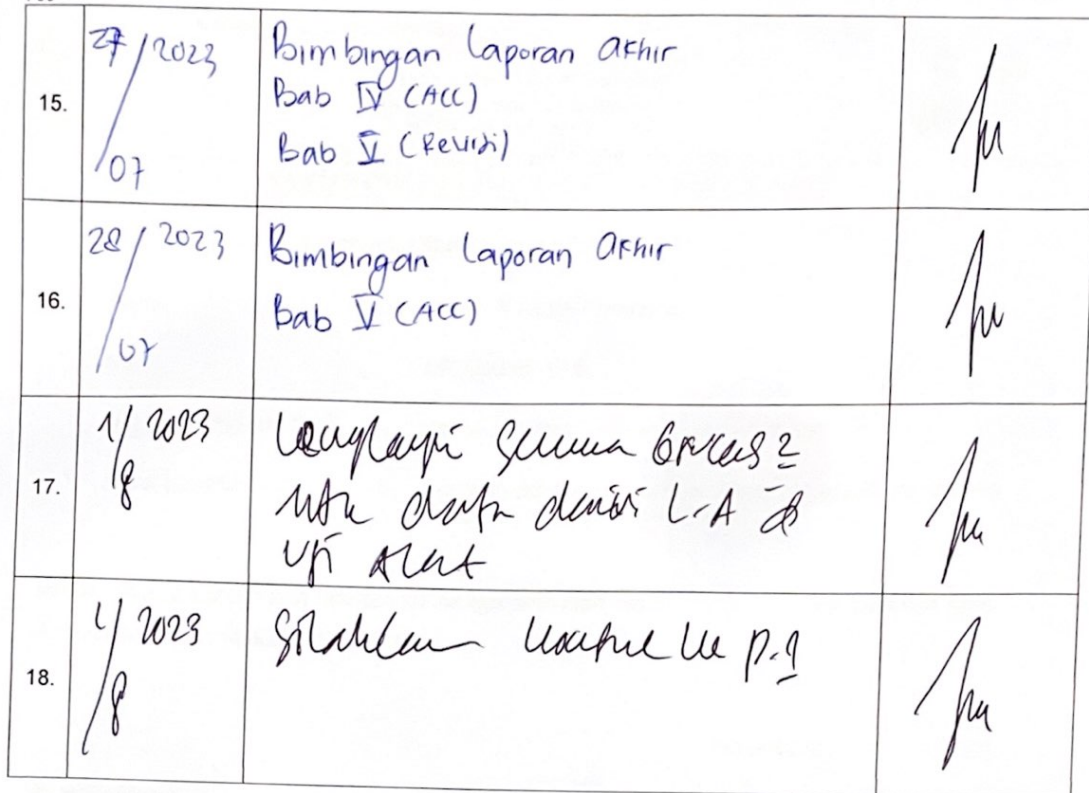 15.
27/2023
/07
Bimbingan Laporan Akhir
Bab IV (ACC)
Bab V (Revisi)
16.
28/2023
/07
Bimbingan Laporan Akhir
Bab V (ACC)
17.
1/2023
8
Lengkapi semua berkas2
utk daftar L-A
Uji Alat
18.
4/2023
/8
Silahkan ke p.1